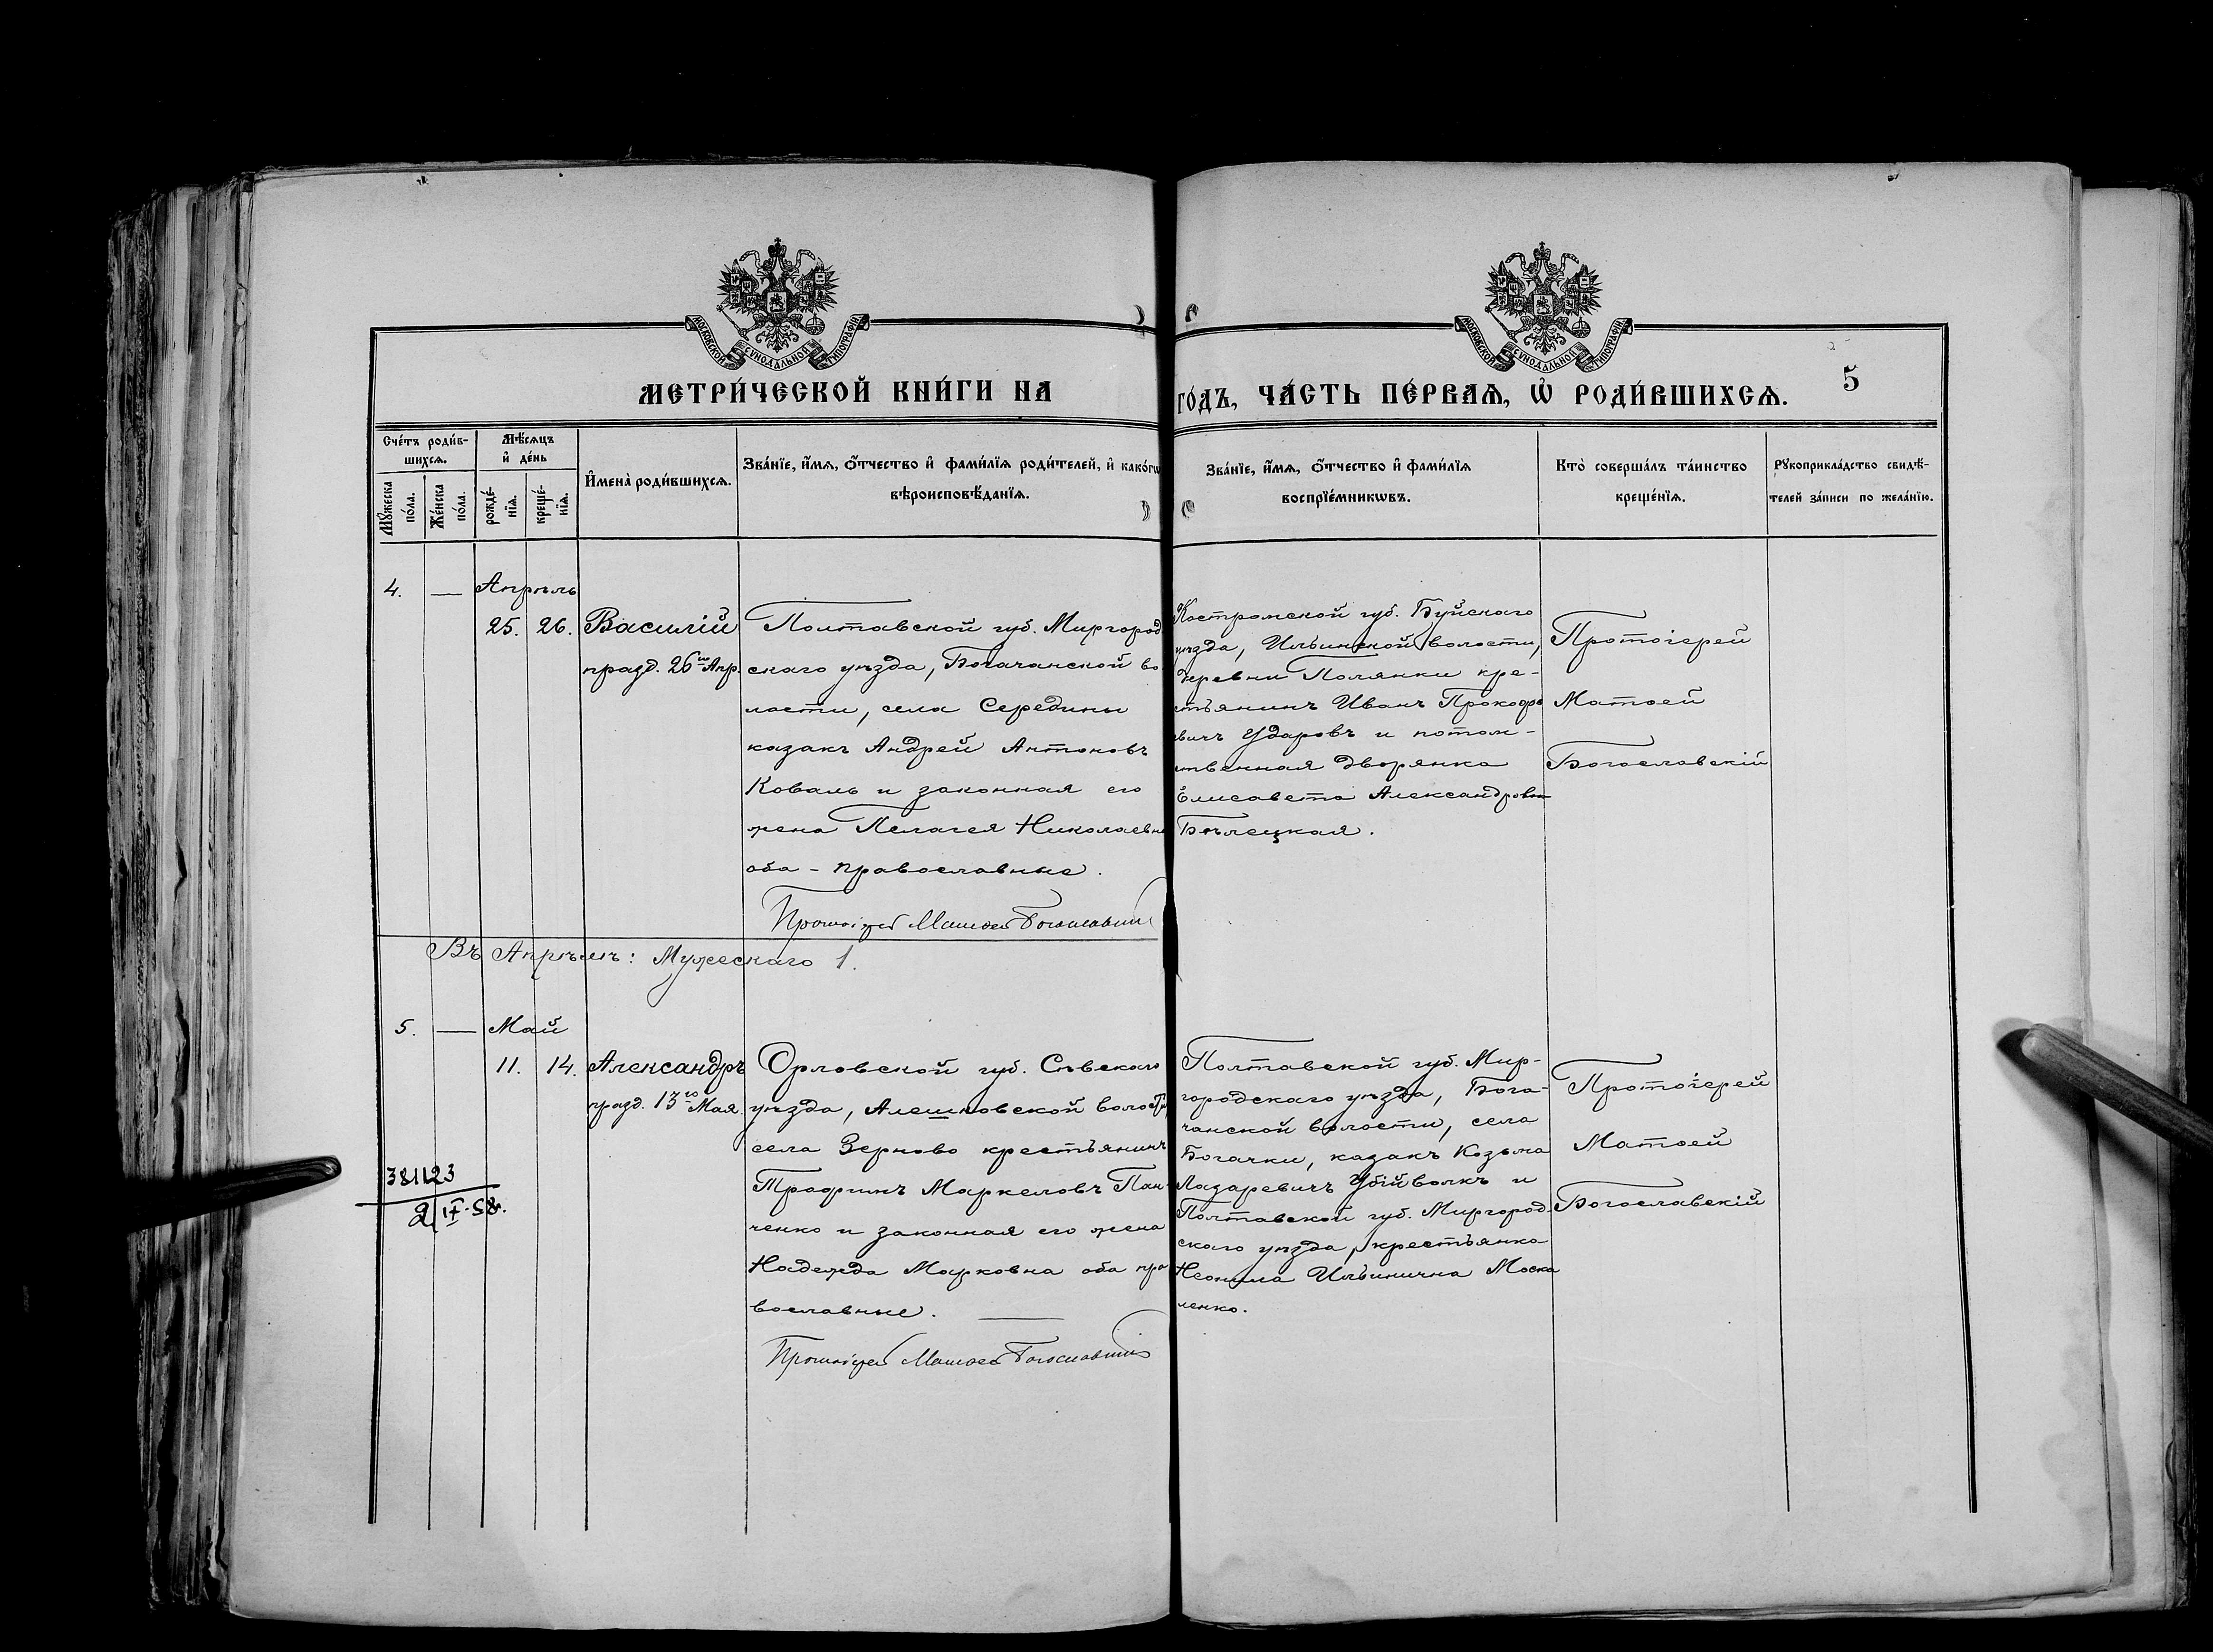 МОСКОВСКОЙ СѴНОДАЛЬНОЙ ТИПОГРАФІИ
МОСКОВСКОЙ СѴНОДАЛЬНОЙ ТИПОГРАФІИ
МЕТРИ́ЧЕСКОЙ КНИ́ГИ НА
ГО́ДЪ, ЧА́СТЬ ПЕ́РВАѦ, Ѡ҆ РОДИ́ВШИХСѦ.
5
Сче́тъ роди́в-
шихсѧ.
Мꙋ́жеска по́ла.
Же́нска по́ла.
Мѣ́сѧцъ
и҆ де́нь
рожде́-нїѧ.
креще́-нїѧ.
И҆мена̀ роди́вшихсѧ.
Зва́нїе, и҆́мѧ, ѻ҆́тчество и҆ фами́лїѧ роди́телей, и҆ како́гѡ
вѣроисповѣ́данїѧ.
Зва́нїе, и҆́мѧ, ѻ҆́тчество и҆ фами́лїѧ
воспрїе́мникѡвъ.
Кто̀ соверша́лъ та́инство
креще́нїѧ.
Рꙋкоприкла́дство свидѣ́-
телей за́писи по жела́нїю.
4. — Апрѣль
25. 26. Василій
празд. 26го Апр.
Полтавской губ. Миргород-
скаго уѣзда, Богачанской во-
лости, села Середины
казакъ Андрей Антоновъ
Коваль и законная его
жена Пелагея Николаевна
оба - православные.
Протоіерей Матѳей Богословскій
Костромской губ. Буйскаго
уѣзда, Ильинской волости,
деревни Полянки кре-
стьянинъ Иванъ Прокофь
евичъ Ударовъ и потом-
ственная дворянка
Елисавета Александровна
Бѣлецкая.
Протоіерей
Матѳей
Богословскій
Въ Апрѣлѣ: Мужескаго 1.
5. — Май
11. 14. Александръ
празд. 13го Мая.
Орловской губ. Сѣвскаго
уѣзда, Алешковской волости,
села Зерново крестьянинъ
Трофимъ Маркеловъ Пан-
ченко и законная его жена
Надежда Марковна оба пра
вославные.
Протоіерей Матѳей Богословскій
Полтавской губ. Мир-
городскаго уѣзда, Бога-
чанской волости, села
Богачки, казакъ Козьма
Лазаревичъ Убійволкъ и
Полтавской губ. Миргород-
скаго уѣзда, крестьянка
Неонила Ильинична Моска
ленко.
Протоіерей
Матѳей
Богославскій
381123
2/IX-58.